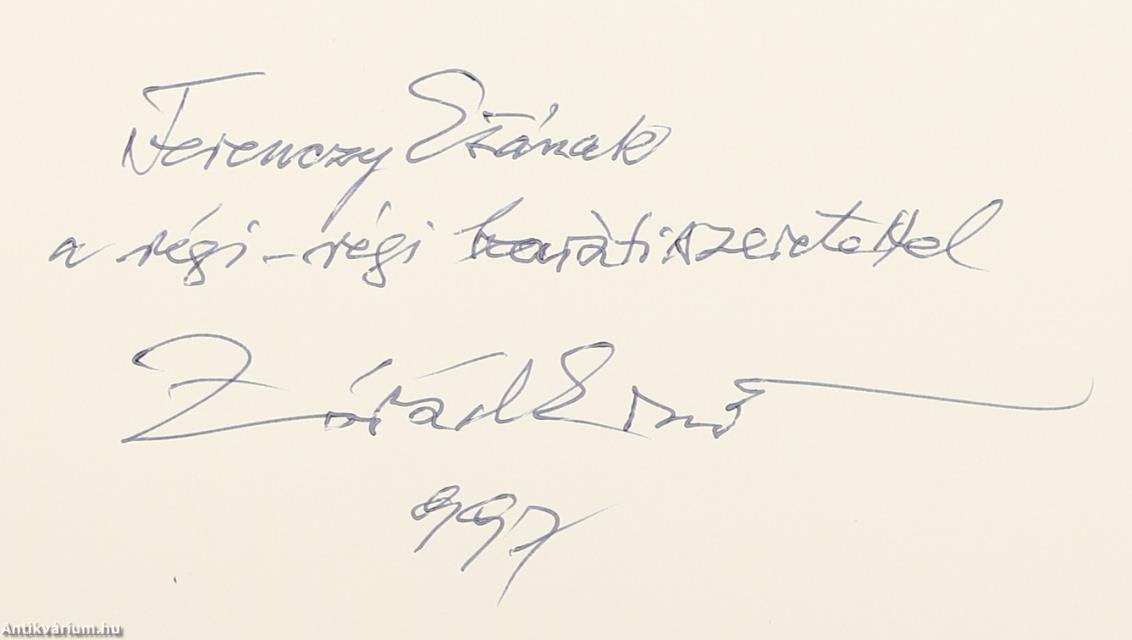 Ferenczy Ezsának
a régi-régi baráti szeretettel
Zórád Ernő
997
Antikvárium.hu